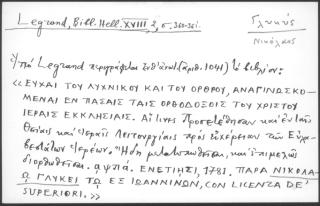 Legrand, Bibl. Hell. XVIII, 2, σ. 360-361.
Γλυκύς
Νικόλαος
Ὑπὸ Legrand περιγράφεται (ἀριθ. 1041) τὸ βιβλίον:
«ΕΥΧΑΙ ΤΟΥ ΛΥΧΝΙΚΟΥ ΚΑΙ ΤΟΥ ΟΡΘΡΟΥ, ΑΝΑΓΙΝΩΣΚΟ-
ΜΕΝΑΙ ΕΝ ΠΑΣΑΙΣ ΤΑΙΣ ΟΡΘΟΔΟΞΟΙΣ ΤΟΥ ΧΡΙΣΤΟΥ
ΙΕΡΑΙΣ ΕΚΚΛΗΣΙΑΙΣ. Αἵτινες Προσετέθησαν καὶ ἐν ταῖς
Θείαις καὶ Ἱεραῖς Λειτουργίαις πρὸς εὐχέρειαν τῶν Εὐλα-
βεστάτων Ἱερέων. Ἤδη μετατυπωθεῖσαι, καὶ ἐπιμελῶς
διορθωθεῖσαι. αψπα. ΕΝΕΤΙΗΣΙ, 1781. ΠΑΡΑ ΝΙΚΟΛΑ-
Ω ΓΛΥΚΕΙ ΤΩ ΕΞ ΙΩΑΝΝΙΝΩΝ, CON LICENZA DE'
SUPERIORI.»